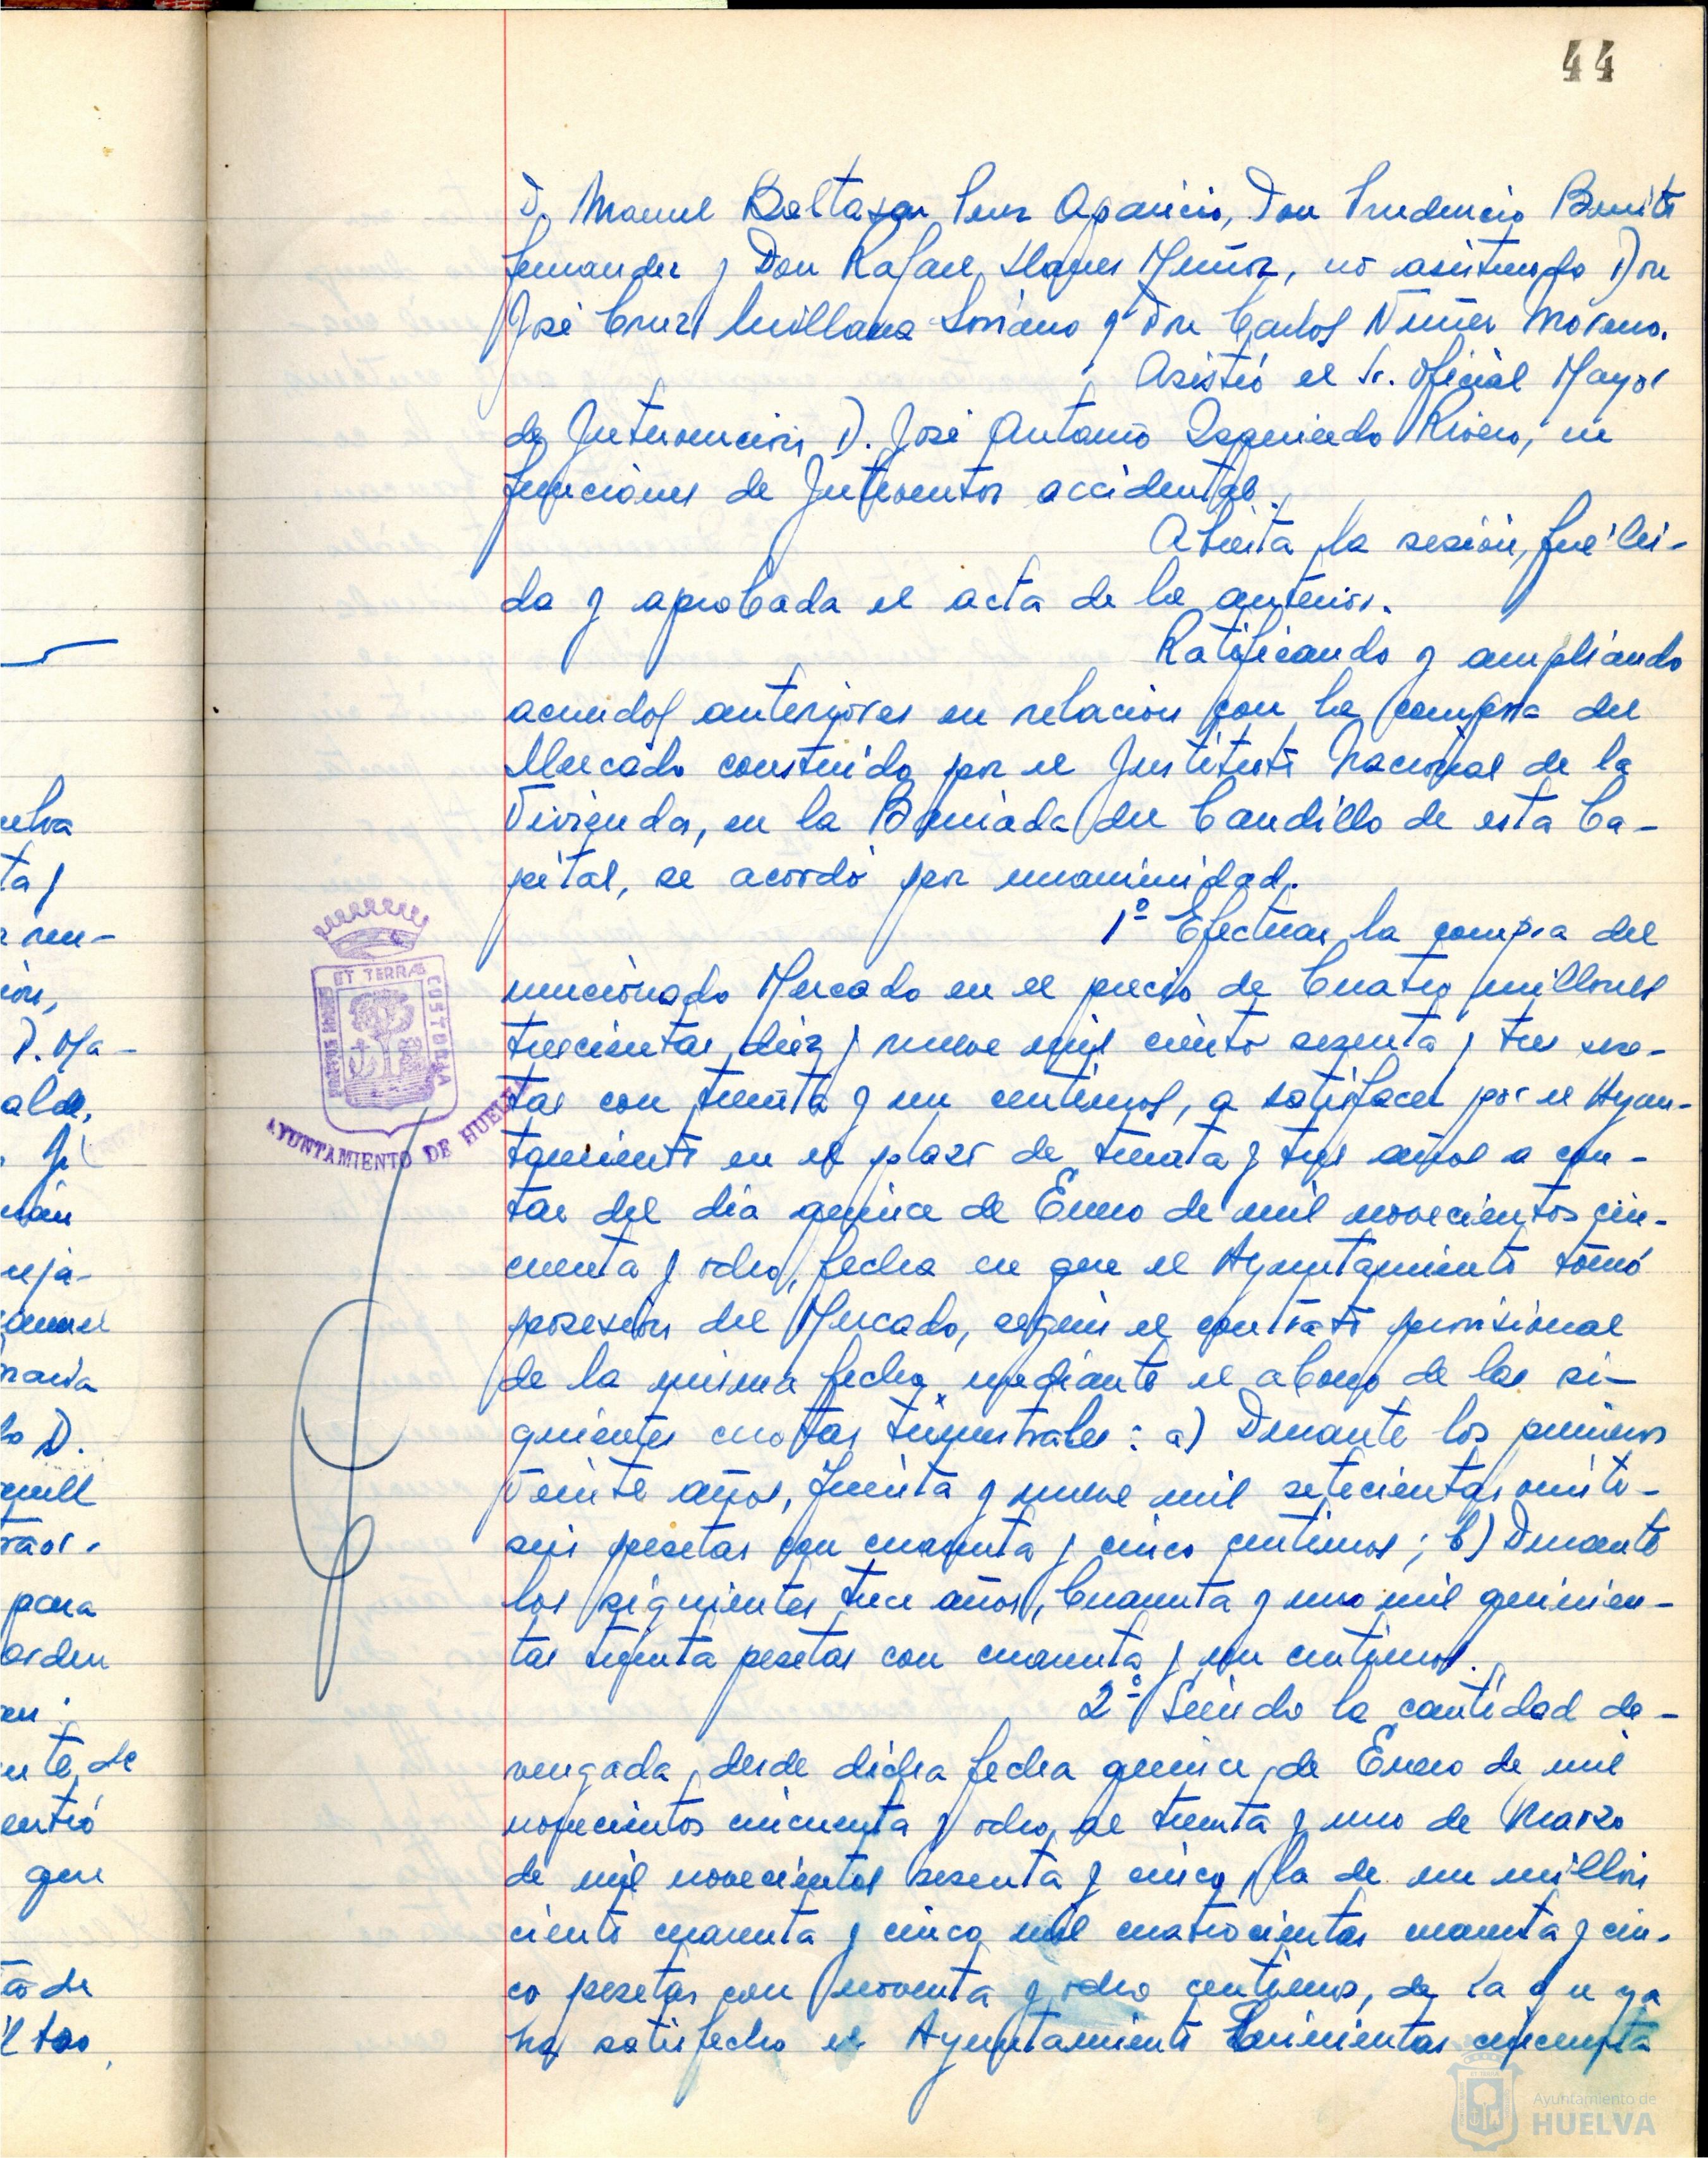 44
D. Manuel Baltasar Perez Aparicio, Don Prudencio Benito
Fernandez y Don Rafael Llanes Muñoz, no asistiendo Don
José Cruz Quillana Soriano y Don Carlos Nuñez Moreno.
Asistió el Sr. Oficial Mayor
de Intervencion D. José Antonio Izquierdo Rivero, en
funciones de Interventor accidental.
Abierta la sesión, fue lei-
da y aprobada el acta de la anterior.
Ratificando y ampliando
acuerdos anteriores en relacion con la compra del
Mercado construido por el Instituto Nacional de la
Vivienda, en la Barriada del Caudillo de esta Ca-
pital, se acordó por unanimidad.
1º Efectuar la compra del
mencionado Mercado en el precio de Cuatro millones
trescientas diez y nueve mil ciento sesenta y tres pese-
tas con treinta y un centimos, a satisfacer por el Ayun-
tamiento en el plazo de treinta y tres años a con-
tar del dia quince de Enero de mil novecientos cin-
cuenta y ocho, fecha en que el Ayuntamiento tomó
posesion del Mercado, según el contrato provisional
de la misma fecha, mediante el abono de las si-
guientes cuotas trimestrales: a) Durante los primeros
veinte años, treinta y nueve mil setecientas veinti-
seis pesetas con cuarenta y cinco centimos; b) Durante
los siguientes trece años, Cuarenta y uno mil quinien-
tas treinta pesetas con cuarenta y un centimos.
2º Siendo la cantidad de-
vengada, desde dicha fecha quince de Enero de mil
novecientos cincuenta y ocho, al treinta y uno de Marzo
de mil novecientos sesenta y cinco, la de un millon
ciento cuarenta y cinco mil cuatrocientas cuarenta y cin-
co pesetas con noventa y ocho centimos, de la que ya
ha satisfecho el Ayuntamiento Quinientas cincuenta
ET TERRÆ CUSTODIA
AYUNTAMIENTO DE HUELVA
Ayuntamiento de
HUELVA